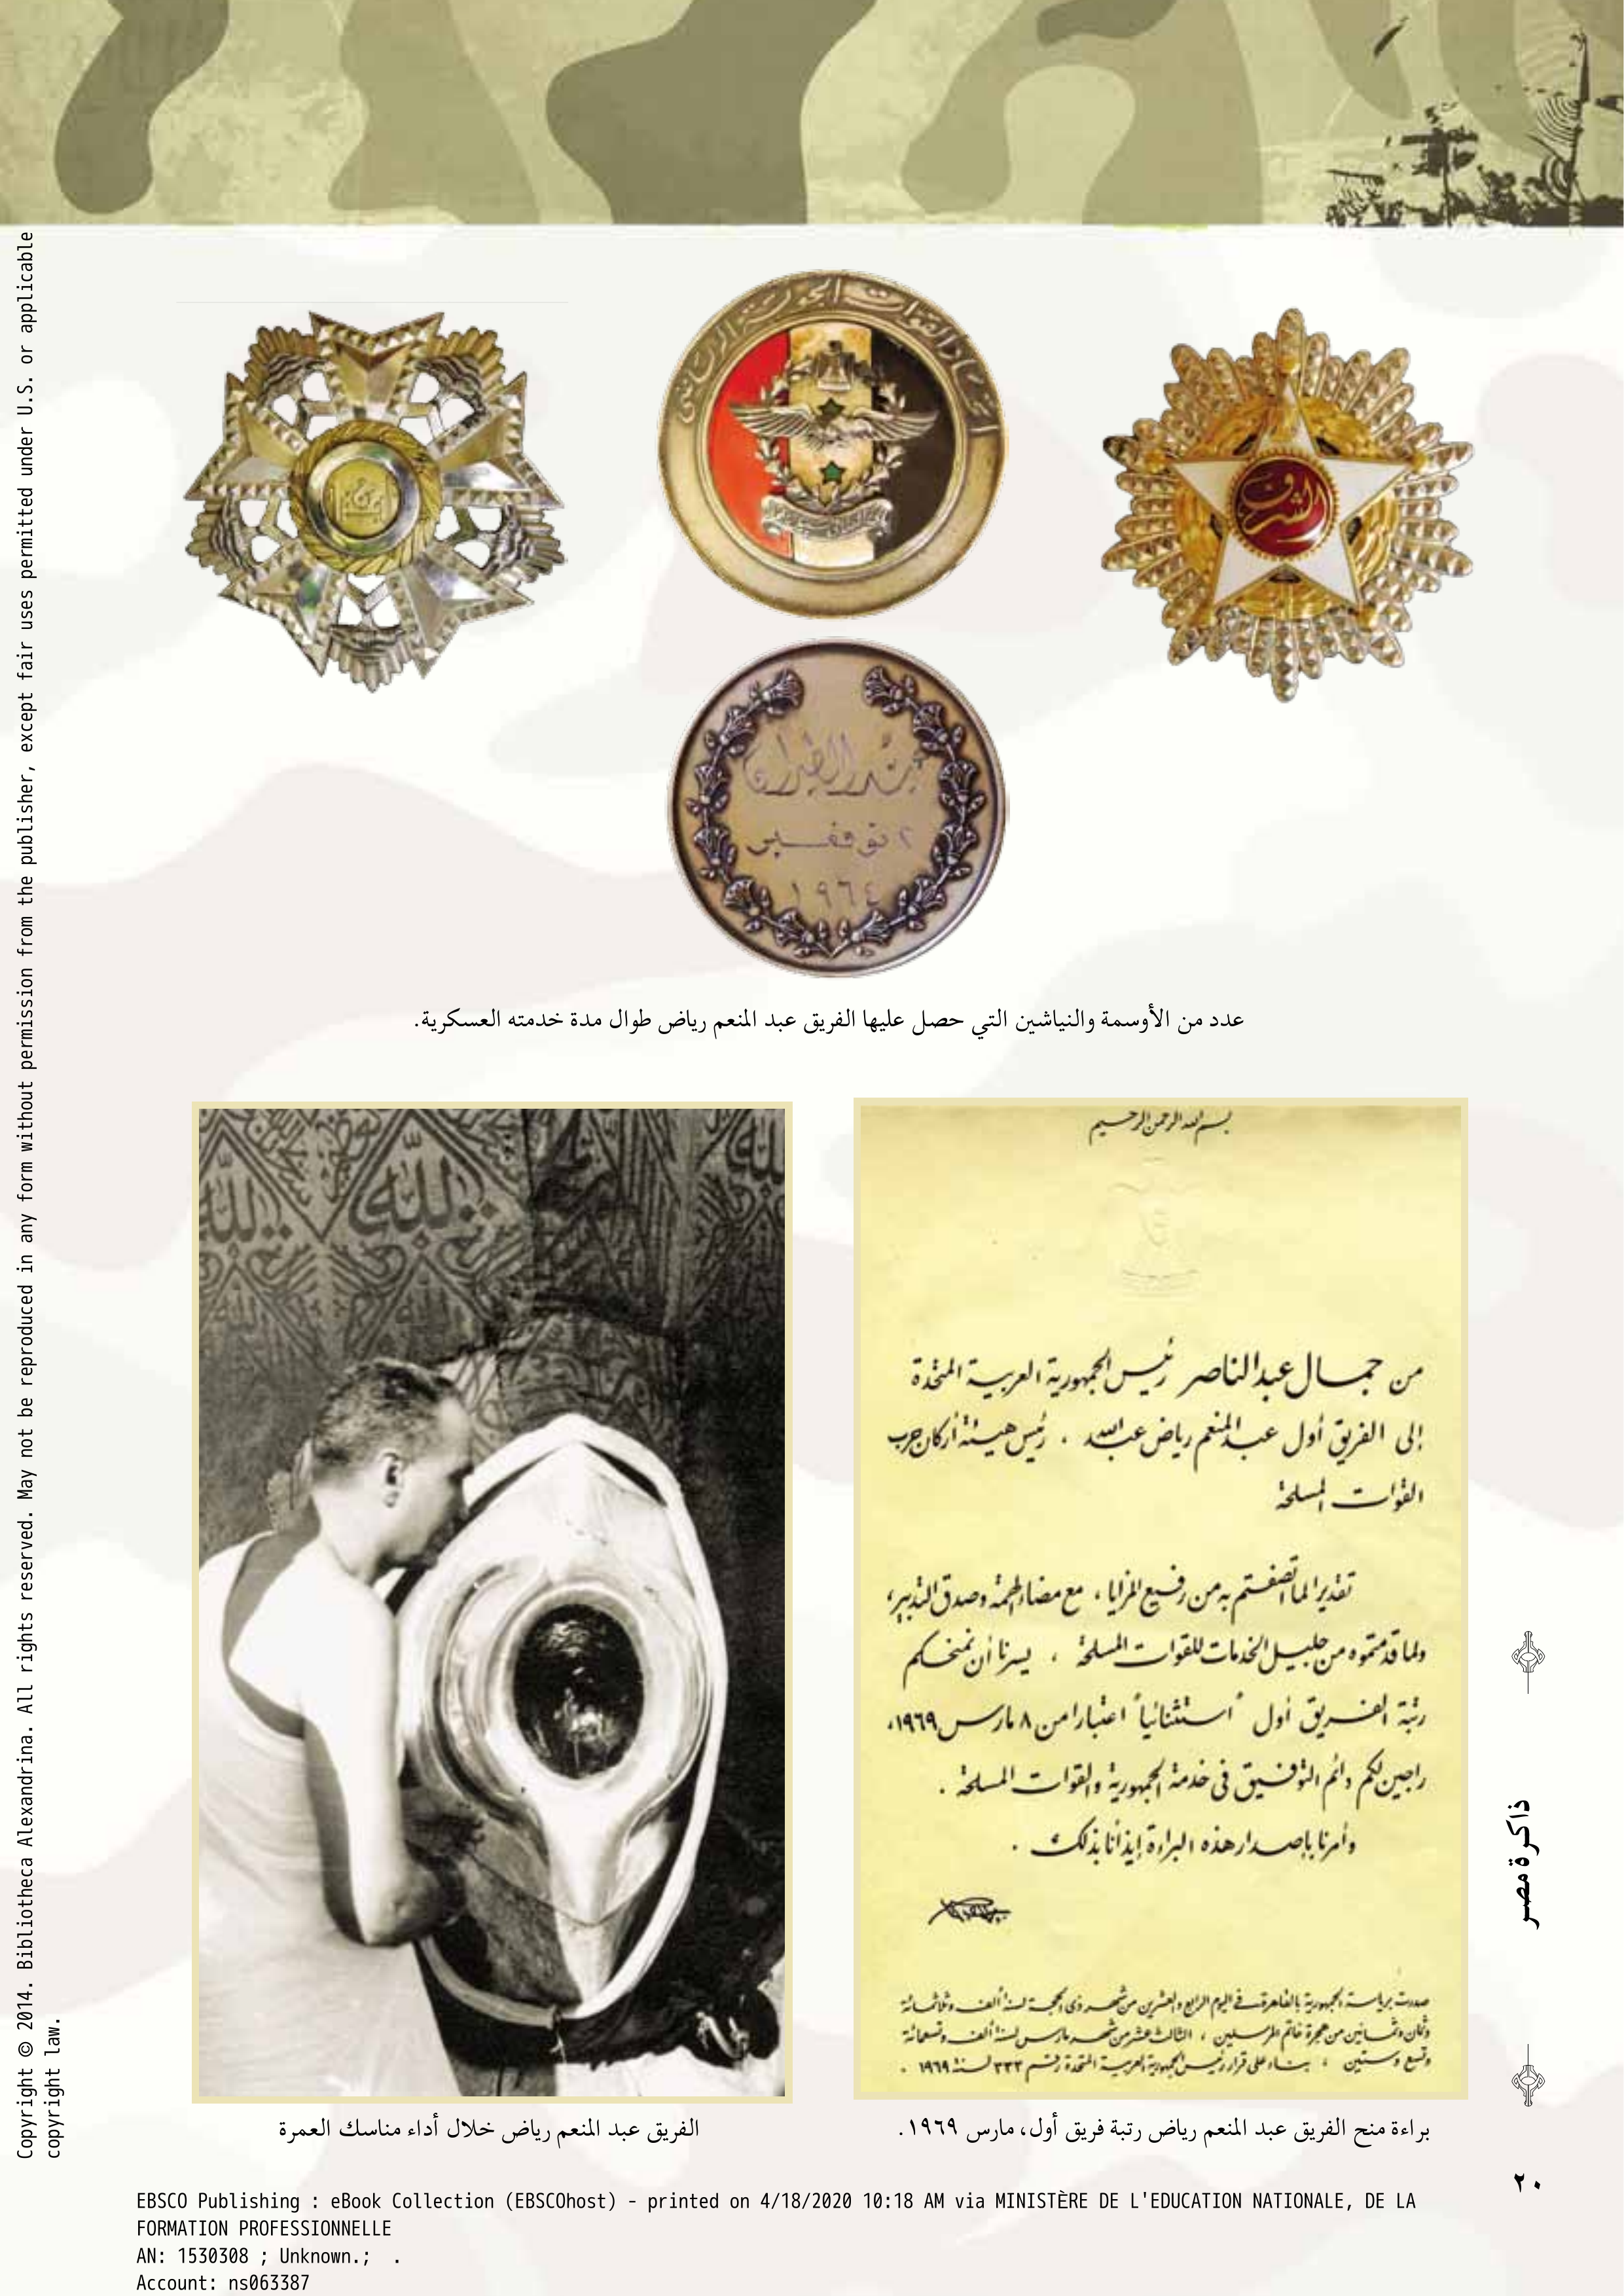 الاتحاد القوات الجوية
الشرف
عيد الطيران
٢ نوفمبر
١٩٦٤
عدد من الأوسمة والنياشين التي حصل عليها الفريق عبد المنعم رياض طوال مدة خدمته العسكرية.
بسم الله الرحمن الرحيم
من جمال عبد الناصر رئيس الجمهورية العربية المتحدة
إلى الفريق أول عبد المنعم رياض عبد الله . رئيس هيئة أركان حرب
القوات المسلحة
تقديرا لما اتصفتم به من رفيع المزايا ، مع مضاء الهمة وصدق التدبير ،
ولما قدمتموه من جليل الخدمات للقوات المسلحة ، يسرنا أن نمنحكم
رتبة الفريق أول "استثنائيا" اعتبارا من ٨ مارس ١٩٦٩،
راجين لكم دائم التوفيق فى خدمة الجمهورية والقوات المسلحة .
وأمرنا بإصدار هذه البراءة إيذانا بذلك .
صدرت برياسة الجمهورية بالقاهرة فى اليوم الرابع والعشرين من شهر ذى الحجة لسنة ألف وثلاثمائة
وثمان وثمانين من هجرة خاتم المرسلين ، الثالث عشر من شهر مارس لسنة ألف وتسعمائة
وتسع وستين ، بناء على قرار رئيس الجمهورية العربية المتحدة رقم ٣٣٣ لسنة ١٩٦٩ .
الله
براءة منح الفريق عبد المنعم رياض رتبة فريق أول، مارس ١٩٦٩.
الفريق عبد المنعم رياض خلال أداء مناسك العمرة
ذاكرة مصر
٢٠
Copyright © 2014. Bibliotheca Alexandrina. All rights reserved. May not be reproduced in any form without permission from the publisher, except fair uses permitted under U.S. or applicable
copyright law.
EBSCO Publishing : eBook Collection (EBSCOhost) - printed on 4/18/2020 10:18 AM via MINISTÈRE DE L'EDUCATION NATIONALE, DE LA
FORMATION PROFESSIONNELLE
AN: 1530308 ; Unknown.; .
Account: ns063387